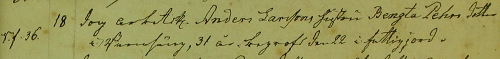 18 Dog arb. Anders Larssons hustru Bengta Pehrs Dotter
v.f. 36. i, 31 år. begrofs den 22 i fattigjord.